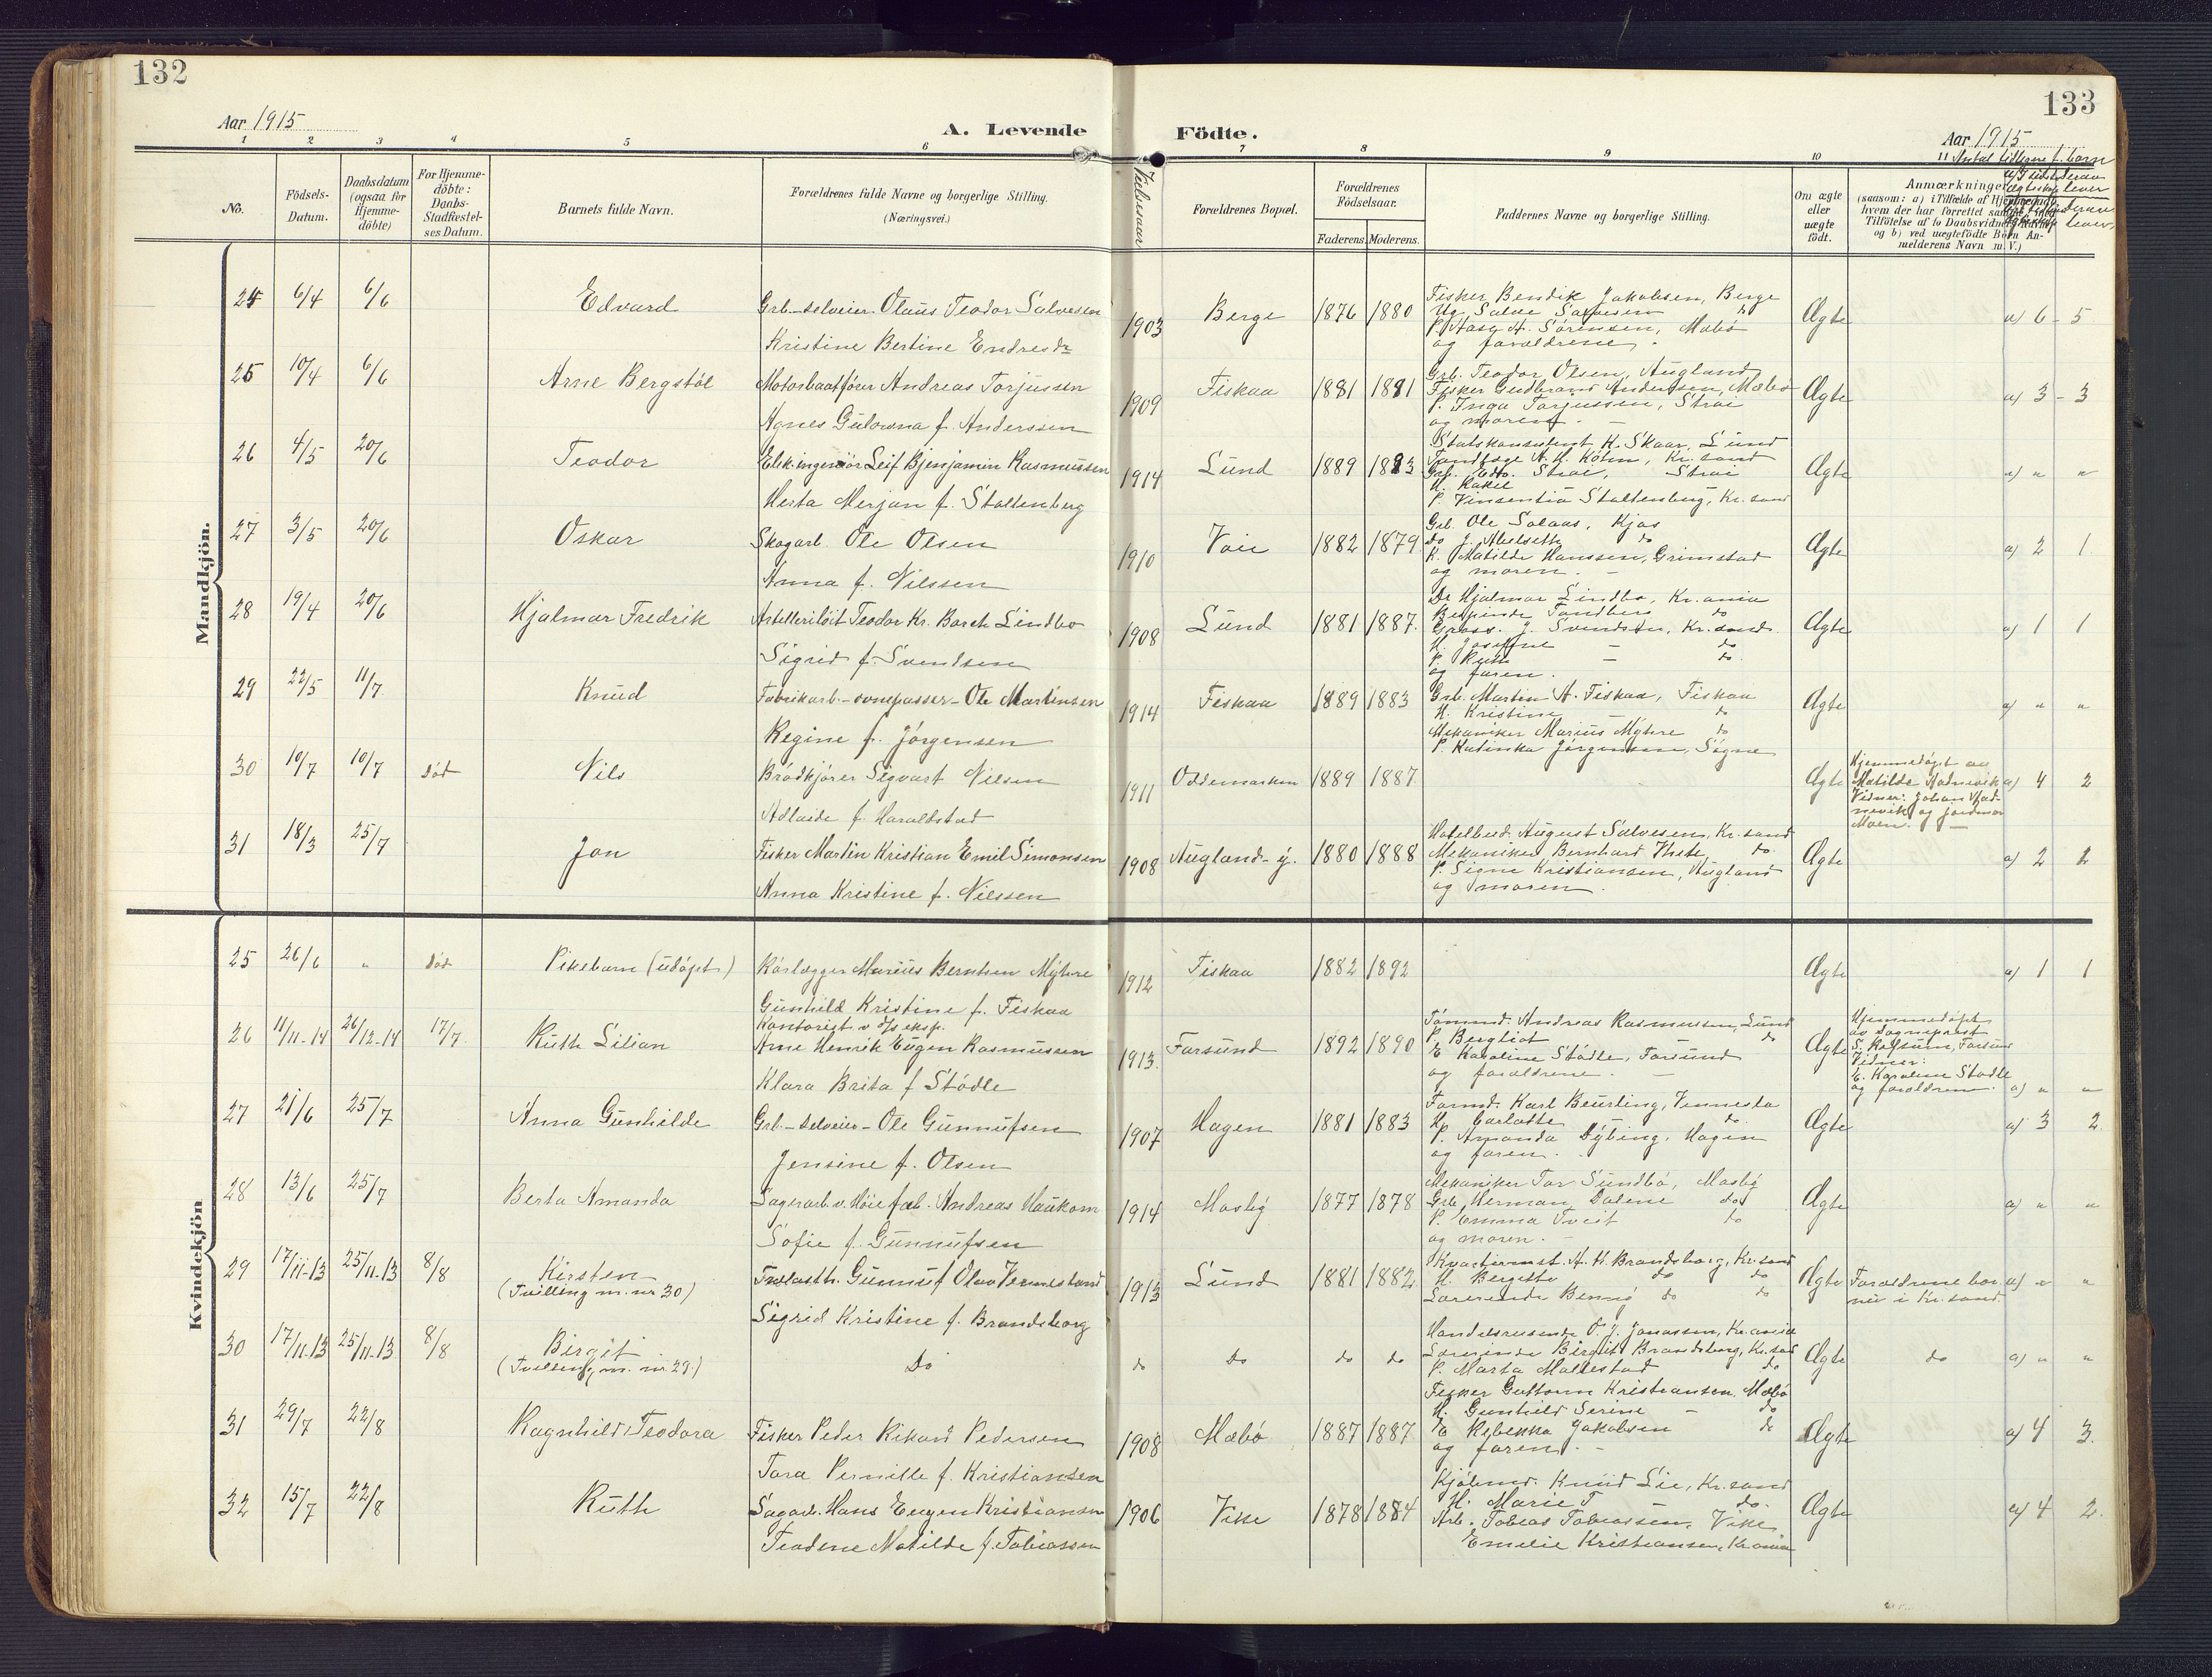 132
133
Aar 1915
A. Levende
Födte.
Aar 1915
1 2 3 4 5 6 7 8 9 10 11
Antal tidligere f. børn
No.
Födsels-
Datum.
Daabsdatum
(ogsaa for
Hjemme-
döbte)
For Hjemme-
döbte:
Daabs-
Stadfæstel-
ses Datum.
Barnets fulde Navn.
Forældrenes fulde Navne og borgerlige Stilling.
(Næringsvei.)
Vielsesaar
Forældrenes Bopæl.
Forældrenes
Födselsaar.
Faderens.
Moderens.
Faddernes Navne og borgerlige Stilling.
Om ægte
eller
uægte
födt.
Anmærkninger
(saasom: a) i Tilfælde af Hjemmedaab,
hvem der har forrettet samme, med
Tilföielse af to Daabsvidners Navne,
og b) ved uægtefödte Börn An-
melderens Navn m. V.)
Mandkjön.
25 6/4 6/6 Edvard
Grb.-selveier Olaus Teodor Salvesen
Kristine Bertine Endresdr
1903 Berge 1876 1880
Fisker Bendik Jakobsen, Berge
Ug. Salve Salvesen do
P. Aasa A. Sørensen, Mæbø
og forældrene.
Ægte a) 6 - 5
25 10/4 6/6 Arne Bergstøl
Motorbaatfører Andreas Torjussen
Agnes Gulowna f. Anderssen
1909 Fiskaa 1881 1881
Grb. Teodor Olsen, Augland
Fisker Gudbrand Anderssen, Mæbø
P. Inga Torjussen, Strai
og moren. -
Ægte a) 3 - 3
26 4/5 20/6 Teodor
Elek.ingeniør Leif Bjenjamin Rasmussen
Herta Merjan f. Stoltenberg
1914 Lund 1889 1883
Statskonsulent H. Skaar, Lund
Tandlæge A. H. Holm, Kr.sand
Grb. Edv. Strai, Strai
H. Rakel
P. Vinsentia Stoltenberg, Kr.sand
Ægte a) " "
27 3/5 20/6 Oskar
Skogarb. Ole Olsen
Anna f. Nilssen
1910 Voie 1882 1879
Grb. Ole Solaas, Kjos
do J. Abelseth do
P. Matilde Hanssen, Grimstad
og moren. -
Ægte a) 2 1
28 19/4 20/6 Hjalmar Fredrik
Artelleriløit Teodor Kr. Borch Lindbo
Sigrid f. Svendsen
1908 Lund 1881 1887.
Dr Hjalmar Lindbo, Kr.ania
Tandberg do
Gross. J. Svendsen, Kr.sand.
H. Josefine - do
P. Ruth - do.
og faren.
Ægte a) 1 1
29 22/5 11/7. Knud
Fabrikarb.-ovnpasser-Ole Martinsen
Regine f. Jørgensen
1914 Fiskaa 1889 1883
Grb. Martin A. Fiskaa, Fiskaa
H. Kristine - do
Mekaniker Marius Myhre do
P. Katinka Jørgensen, Søgne
Ægte a) " "
30 10/7 10/7 død Nils
Brødkjører Sigvart Nilsen
Adlaide f. Haraldstad
1911 Oddemarken 1889 1887.
Ægte
Hjemmedøpt av
Matilde Hadnevik
Vidner: Johan Had-
nevik og jordmor
Moen. -
a) 4 2
31 18/3 25/7 Jon
Fisker Martin Kristian Emil Simonsen
Anna Kristine f. Nilssen
1908 Augland-y. 1880 1888
Hotelbud. August Salvesen, Kr.sand
Mekaniker Bernhard do.
P. Signe Kristiansen, Augland
og moren.
Ægte a) 2 2
Kvindekjön
25 26/6 " død Pikebarn (udøpt)
Rørlægger Marius Berntsen Myhre
Gunhild Kristine f. Fiskaa
1912 Fiskaa 1882 1892
Ægte a) 1 1
26 11/11-14 26/12-14 17/7 Ruth Lilian
Kontorist v d/s eksp.
Arne Henrik Eugen Rasmussen
Klara Brita f Stødle
1913 Farsund 1892 1890
Tømmd. Andreas Rasmussen, Lund
P. Bergliot - do
E Karoline Stødle, Farsund
og forældrene. -
Ægte
Hjemmedøpt
av sogneprest
S. Refsum, Farsund
Vidner:
E. Karoline Stødle
og forældrene. a) " "
27 21/6 25/7 Anna Gunhilde
Grb.-selveier-Ole Gunnufsen
Jensine f. Olsen
1907 Hagen 1881 1883
Formd. Karl Beurling, Vennesla
H. Carlotte do.
P. Amanda Dybing, Hagen
og faren.
Ægte a) 3 2.
28 13/6 25/7 Berta Amanda
Lagerarb. v. Høie fab. Andreas Haukom
Sofie f. Gunnufsen
1914 Mosby 1877 1878
Mekaniker Tor Sundbø, Mosby
Grb. Herman Dalene do
P. Emma Tveit do
og moren. -
Ægte a) " "
29 17/11-13 25/11-13 8/8 Kirsten
(Tvilling m. nr 30)
Trælasth. Gunnuf Olav Vennesland
Sigrid Kristine f. Brandsborg
1913 Lund 1881 1882
Kvartermst. A. H. Brandsborg, Kr.sand
H. Bergitte do do
Lærerinde Benny do do
Ægte Forældrene bor
nu i Kr.sand. a) " "
30 17/11-13 25/11-13 8/8 Birgit
(Tvilling m. nr. 29.)
Do do Do do do
Handelsreisende O. J. Jonassen, Kr.ania
Lærerinde Birgit Brandsborg, Kr.sand
P. Marta Mollestad do
Ægte do a) " "
31 29/7 22/8 Ragnhild Teodora
Fisker Peder Rikard Pedersen
Tora Pernille f. Kristiansen
1908 Mæbø 1887 1887
Fisker Guttorm Kristiansen, Mæbø
H. Gunhild Serine - do
E Rebekka Jakobsen do
og faren. -
Ægte a) 4 3.
32 15/7 22/8 Ruth
Sagarb. Hans Eugen Kristiansen
Teodine Matilde f. Tobiassen
1906 Vike 1878 1884
Kjøbmd. Knud Lie, Kr.sand
H. Marie T - do.
Arb. Tobias Tobiassen, Vike
Emilie Kristiansen, Kr.ania
Ægte a) 4 2.